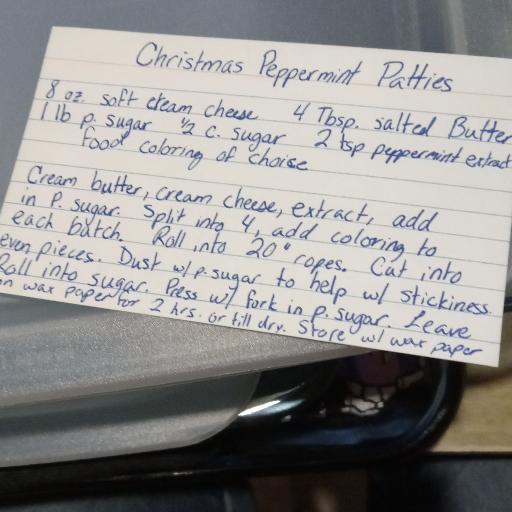 Christmas Peppermint Patties
8 oz. soft cream cheese 4 Tbsp. salted Butter
1 lb p. sugar ½ c. sugar 2 tsp peppermint extract
Food coloring of choise
Cream butter, cream cheese, extract, add
in p. sugar. Split into 4, add coloring to
each batch. Roll into 20" ropes. Cut into
even pieces. Dust w/ p. sugar to help w/ stickiness.
Roll into sugar. Press w/ fork in p. sugar. Leave
on wax paper for 2 hrs. or till dry. Store w/ wax paper